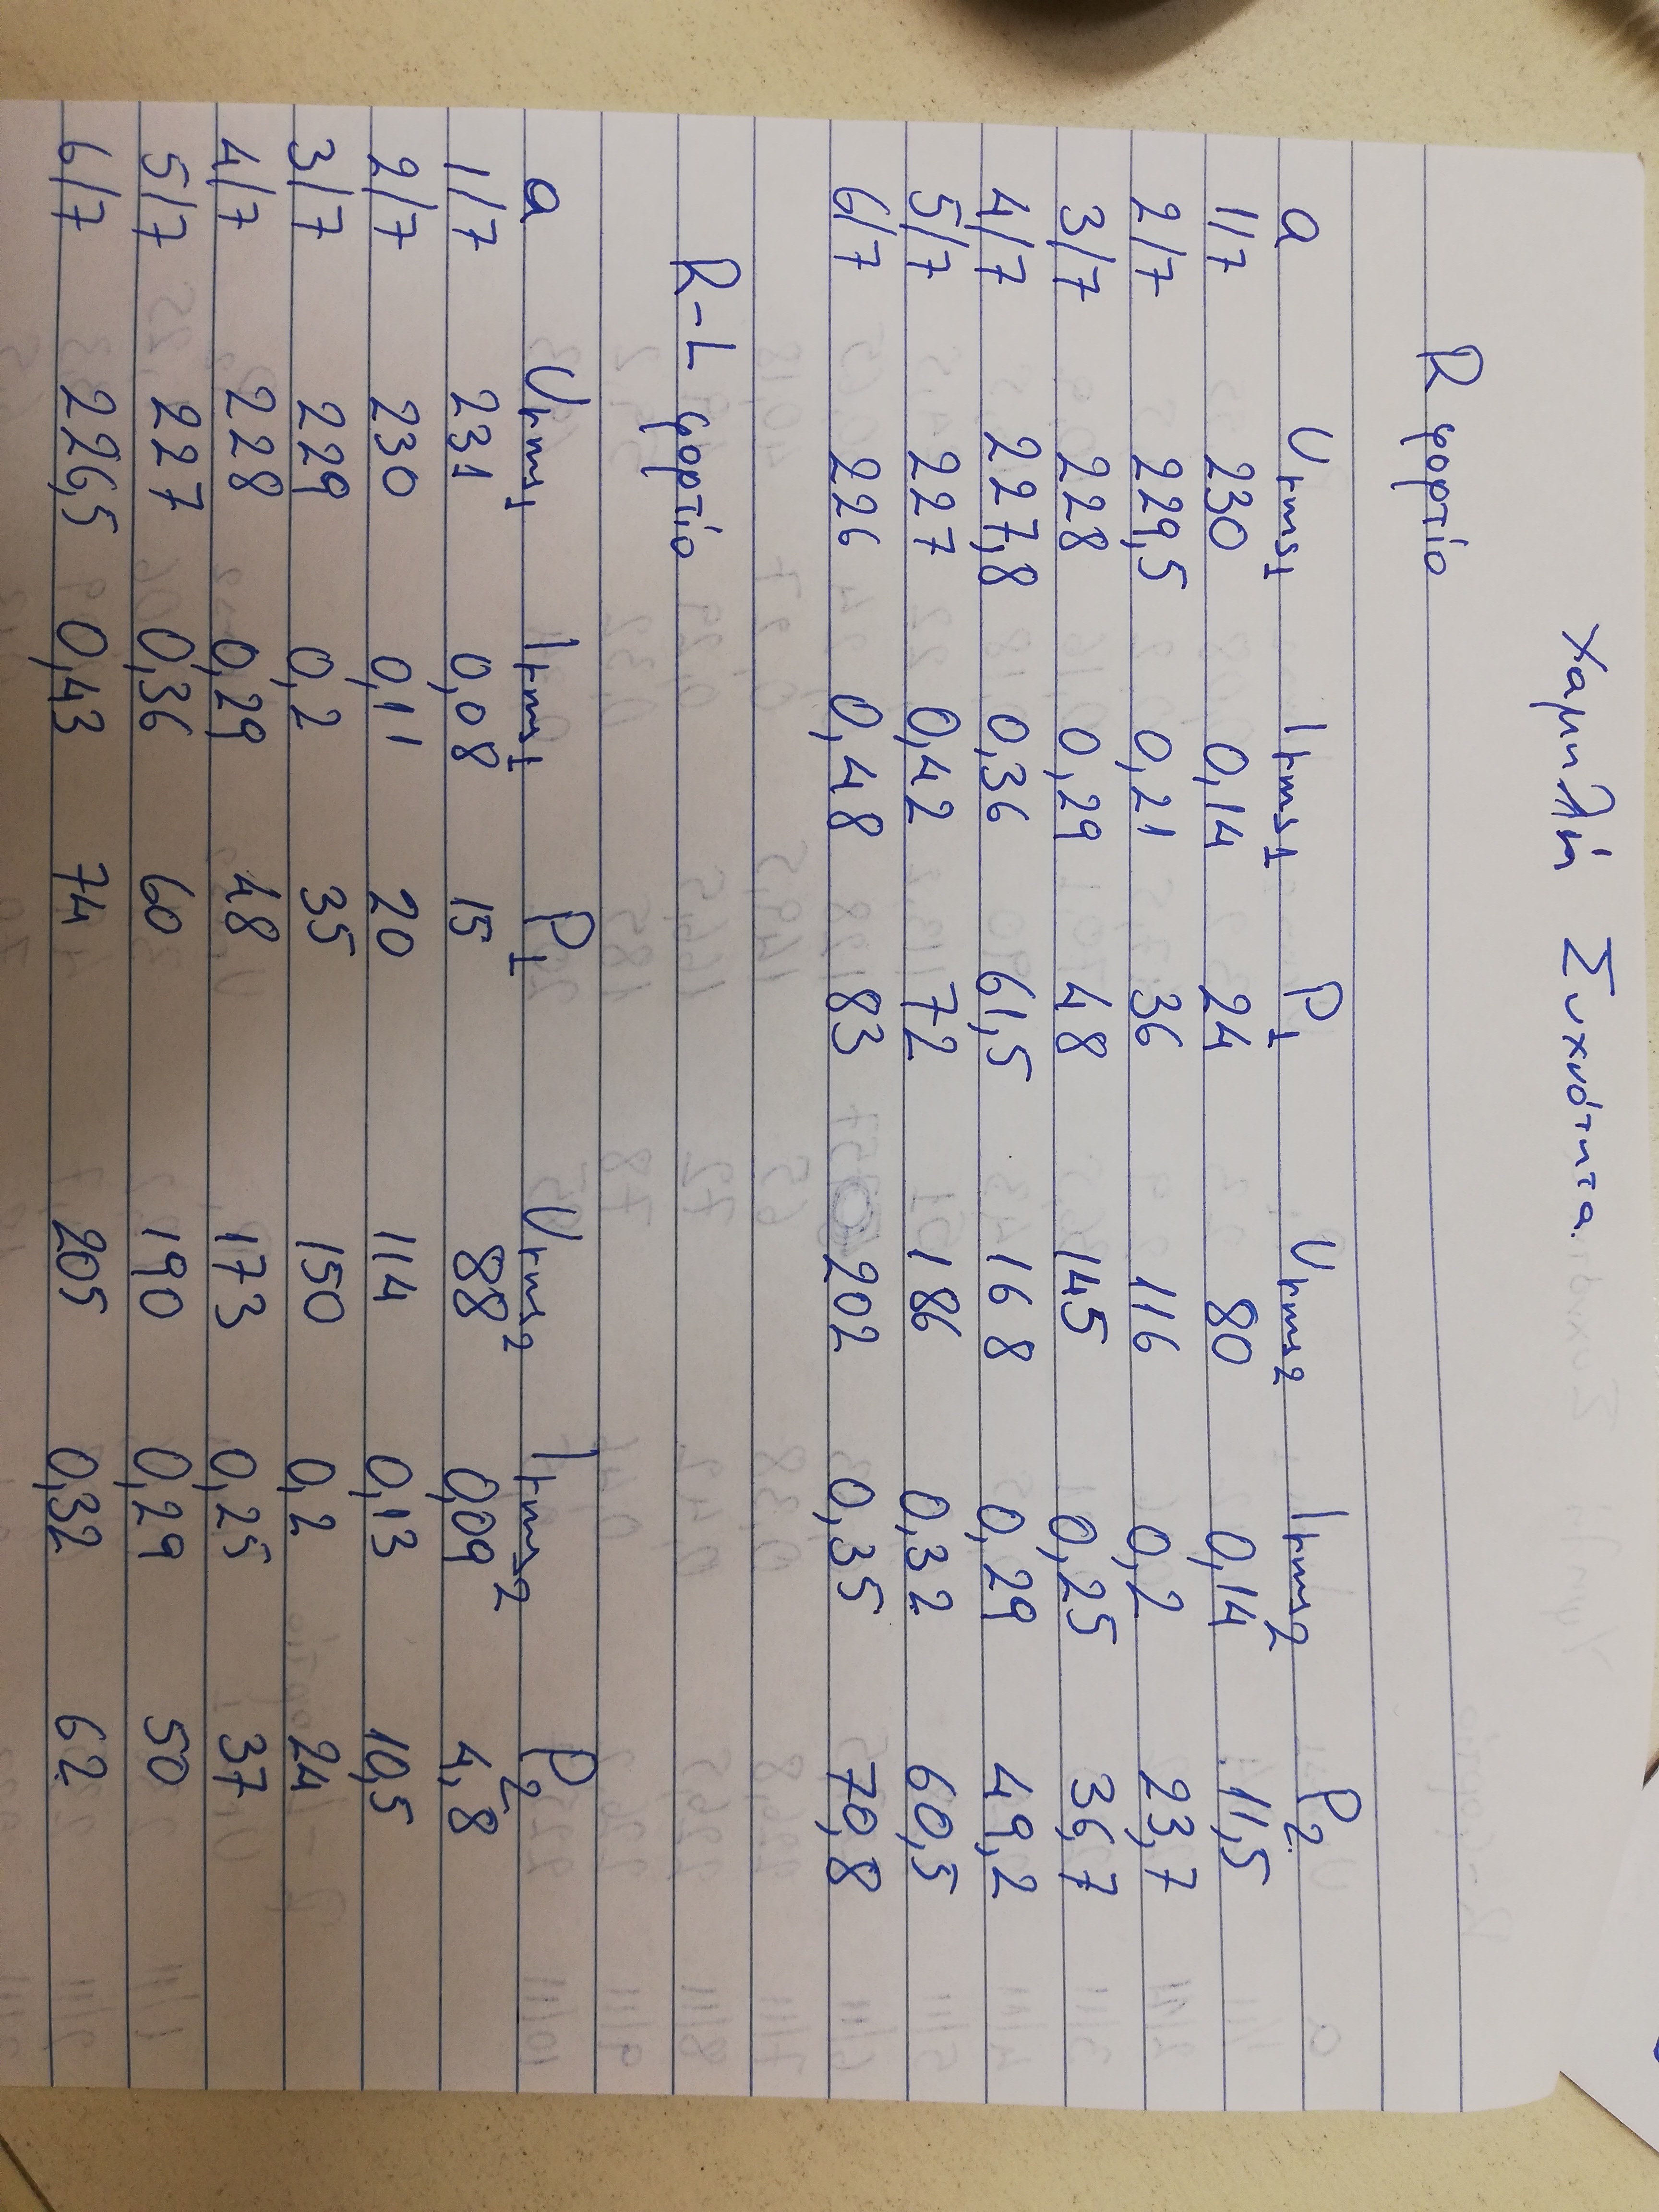 Χαμηλή Συχνότητα
R φορτίο
a Vrms1 Irms1 P1 Vrms2 Irms2 P2
1/7 230 0,14 24 80 0,14 11,5
2/7 229,5 0,21 36 116 0,2 23,7
3/7 228 0,29 48 145 0,25 36,7
4/7 227,8 0,36 61,5 168 0,29 49,2
5/7 227 0,42 72 186 0,32 60,5
6/7 226 0,48 83 202 0,35 70,8
R-L φορτίο
a Vrms1 Irms1 P1 Vrms2 Irms2 P2
1/7 231 0,08 15 88 0,09 4,8
2/7 230 0,11 20 114 0,13 10,5
3/7 229 0,2 35 150 0,2 24
4/7 228 0,29 48 173 0,25 37
5/7 227 0,36 60 190 0,29 50
6/7 226,5 0,43 74 205 0,32 62